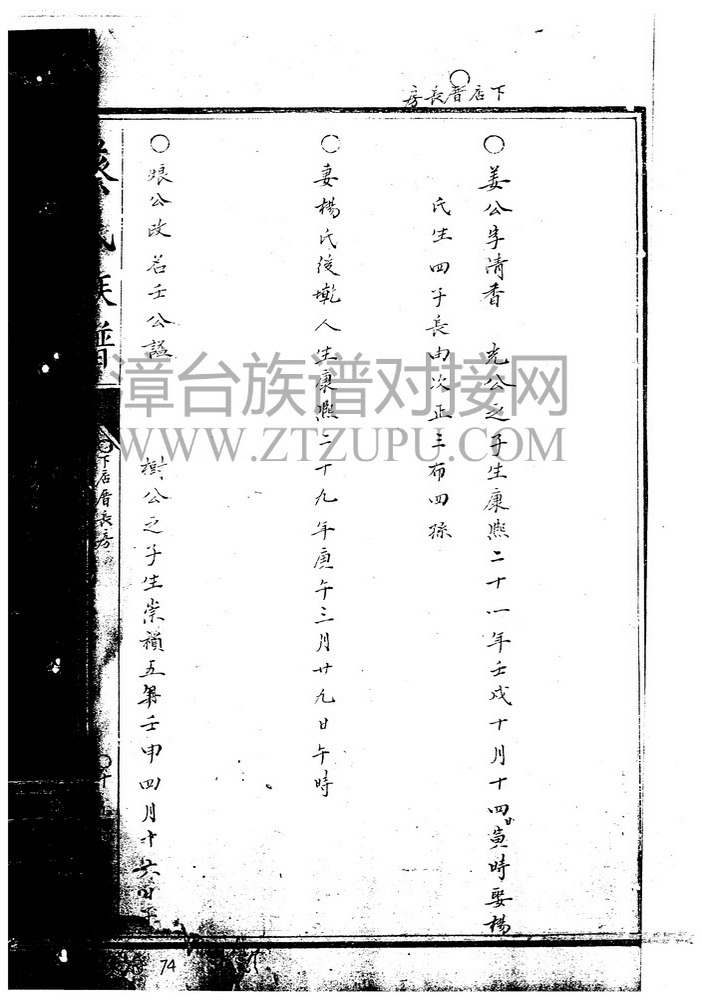 下店厝長房
○姜公字清香 光公之子生康熙二十一年壬戌十月十四日寅時娶楊
氏生四子長由次正三布四孫
○妻楊氏後墘人生康熙二十九年庚午三月廿九日午時
○娘公改名壬公諡 樹公之子生崇禎五年壬申四月十六日
氏族譜
下店厝長房
74
漳台族谱对接网
WWW.ZTZUPU.COM